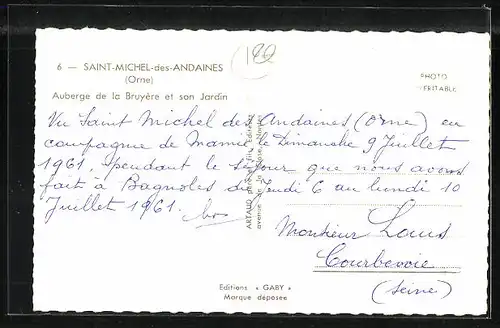 6 — SAINT-MICHEL-des-ANDAINES
(Orne)
Auberge de la Bruyère et son Jardin
PHOTO
VÉRITABLE
Vu Saint Michel des Andaines (Orne) en
compagnie de Mamie le Dimanche 9 Juillet
1961, pendant le séjour que nous avons
fait à Bagnoles du Jeudi 6 au lundi 10
Juillet 1961.
ARTAUD père et fils, Éditeurs
avenue de la Close, Nantes
Monsieur Louis
Courbevoie
(Seine)
Editions « GABY »
Marque déposée